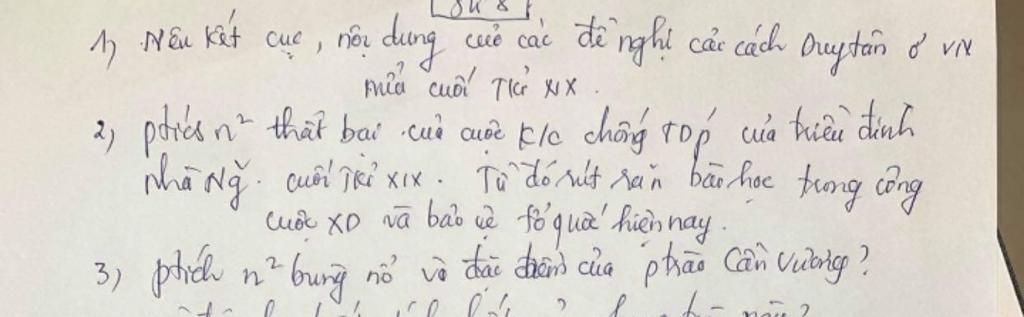 Sử 8
1) Nêu kết cục, nội dung của các đề nghị cải cách Duy tân ở VN
nửa cuối TKỉ XIX.
2) ptích n² thất bại của cuộc K/C chống TDP của triều đình
nhà Ng~. cuối TKỉ XIX. Từ đó rút ra n~ bài học trong công
cuộc XD và bảo vệ tổ quốc hiện nay.
3) ptích n² bùng nổ và đặc điểm của ptrào Cần Vương?